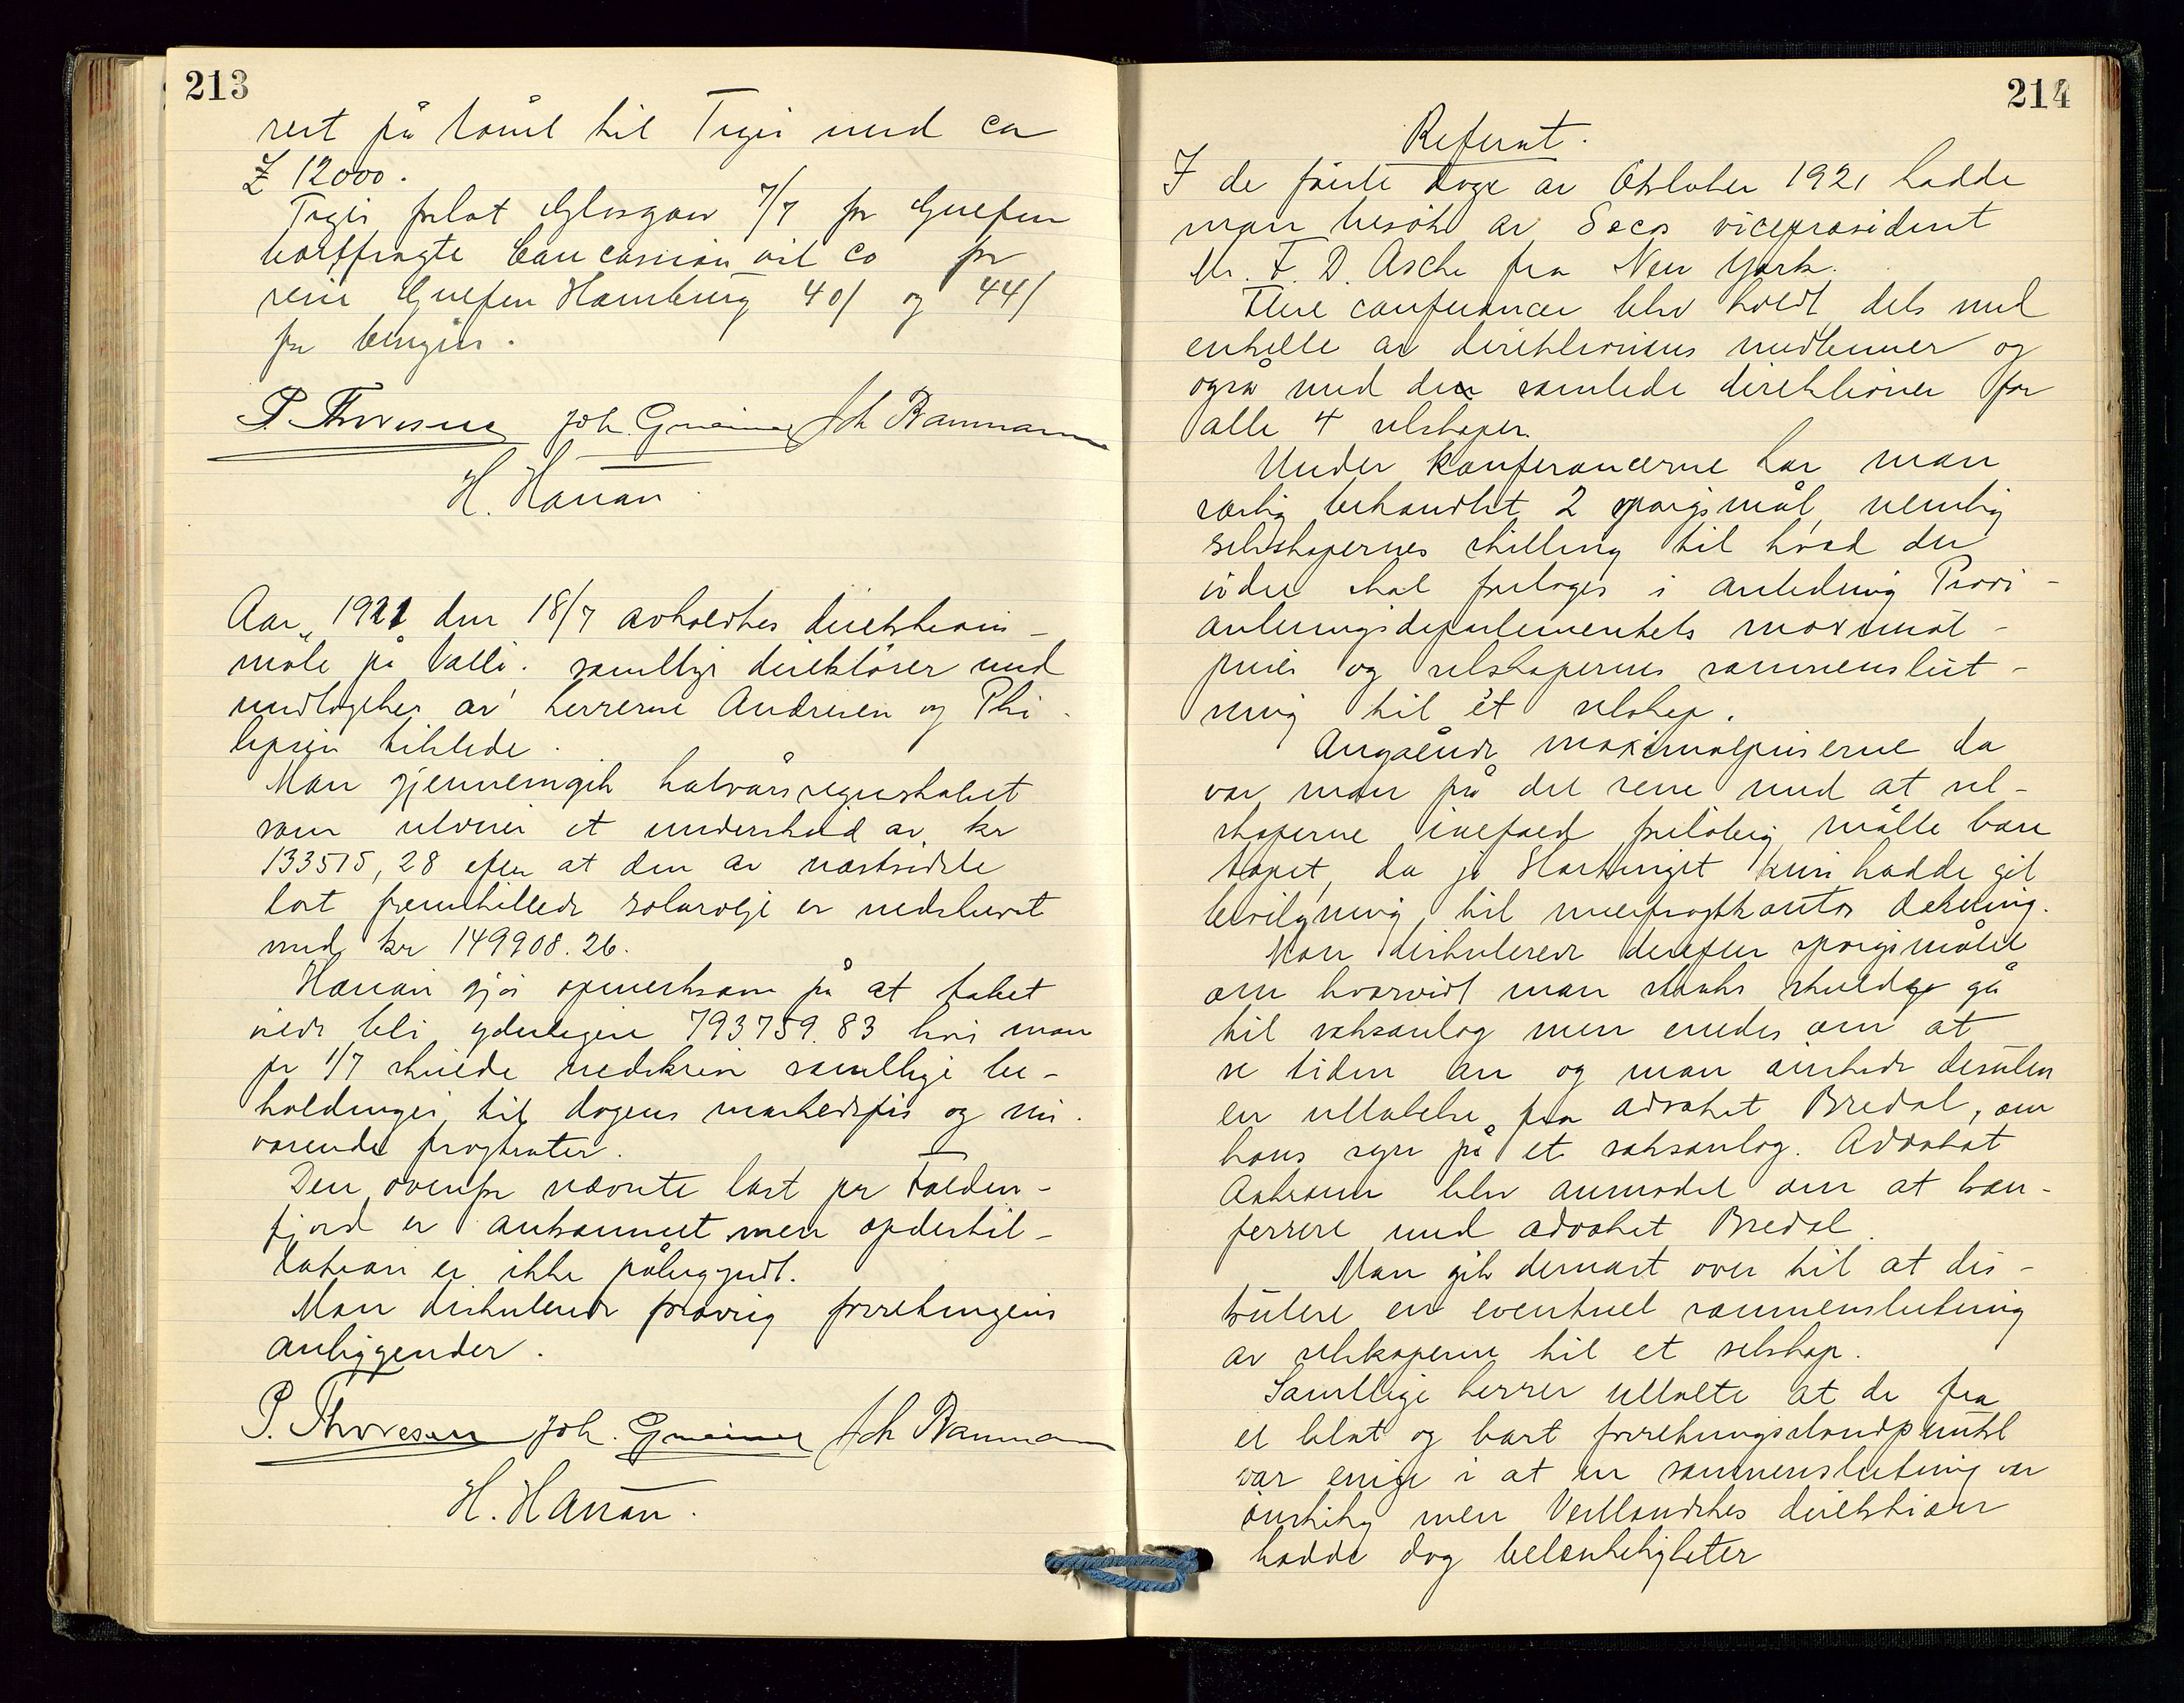 213
rert på kåril til Tigris med ca
£ 12000.
Tigris forlot Glasgow 7/7 for Guefen
bortfragte Caucasian oil Co for
reise Guefen Hamburg 40/ og 44/
for bengin.
P. Thoresen Joh. Greiner Joh Baumann
H. Hansen
Aar 1921 den 18/7 avholdtes direktions-
møte på Valle. samtlige direktører med
undtagelse av herrerne Andresen og Phi-
lipsen tilstede.
Man gjennemgik halvårsregnskabet
som utviser et underskud av kr
133515,28 efter at den av næstsidste
last fremstillede solarolje er nedskrevet
med kr 149908.26.
Hansen gjør opmerksom på at tabet
vilde bli yderligere 793759.83 hvis man
pr 1/7 skulde nedskrive samtlige be-
holdninger til dagens markedspris og nu-
værende fragtrater.
Den ovenfor nævnte last per Folden-
fjord er ankommet men opdestil-
lation er ikke påbegyndt.
Man diskuterede forøvrig forretningens
anliggender.
P. Thoresen Joh. Greiner Joh Baumann
H. Hansen.
214
Referat.
I de første dage av Oktober 1921 hadde
man besøk av Socos vicepræsident
Mr. F. D. Asche fra New York.
Flere conferancer blev holdt dels med
enkelte av direktionens medlemmer og
også med den samlede direktioner for
alle 4 selskaper.
Under konferancerne har man
særlig behandlet 2 spørgsmål, nemlig
selskapernes stilling til hvad der
videre skal foretages i anledning Provi-
anteringsdepartementets maximal-
priser og selskapernes sammenslut-
ning til ét selskap.
Angående maximalpriserne da
var man på det rene med at sel-
skaperne ialfald foreløbig måtte bære
tapet, da jo Stortinget kun hadde git
bevilgning til merfragtkontos dækning.
Man diskuterede derefter spørgsmålet
om hvorvidt man straks skulde gå
til saksanlæg men enedes om at
se tiden an og man ønskede desuten
en uttalelse fra advokat Bredal, om
hans syn på et saksanlæg. Advokat
Aakrann blev anmodet om at kon-
ferrere med advokat Bredal.
Man gik dernæst over til at dis-
kutere en eventuel sammenslutning
av selskaperne til et selskap.
Samtlige herrer uttalte at de fra
et blot og bart forretningsstandpunkt
var enige i at en sammenslutning var
ønskelig men Vestlandskes direktion
hadde dog betenkeligheter